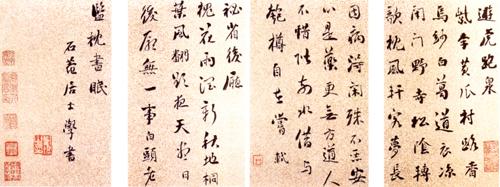 遊虎跑泉
紫李黄瓜村路香
烏紗白葛道衣涼
閉門野寺松陰轉
欹枕風軒客夢長
因病得閑殊不惡安
心是藥更無方道人
不惜階前水借与
匏樽自在嘗 軾
秘省後廳
槐花雨潤新秋地桐
葉風翻欲夜天盡日
後廳無一事白頭老
監枕書眠
石菴居士學書